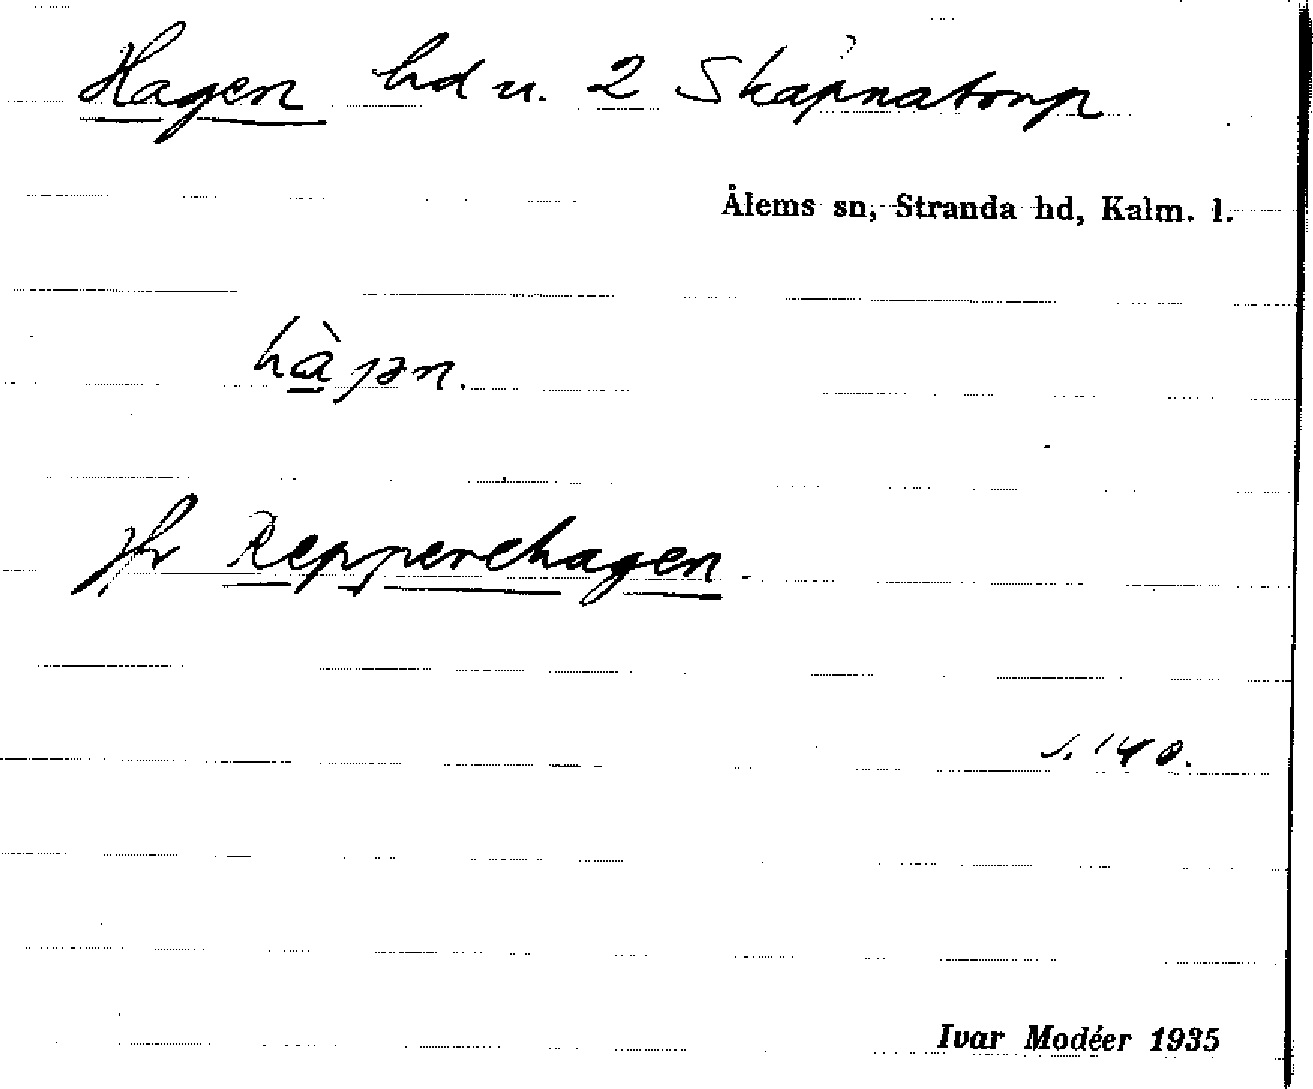 Hagen hd u. 2 Skäpnatorp
Ålems sn, Stranda hd, Kalm. l.
hàjən.
jfr Repperehagen
s. 140.
Ivar Modéer 1935